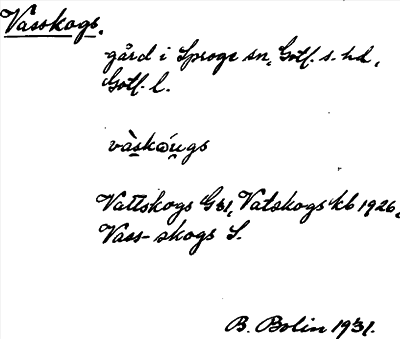 Vasskogs.
gård i Sproge sn, Gotl. s. hd,
Gotl. l.
vàskóugs
Vattskogs GS1, Vatskogs kb 1926,
Vass-skogs S.
B. Bolin 1931.